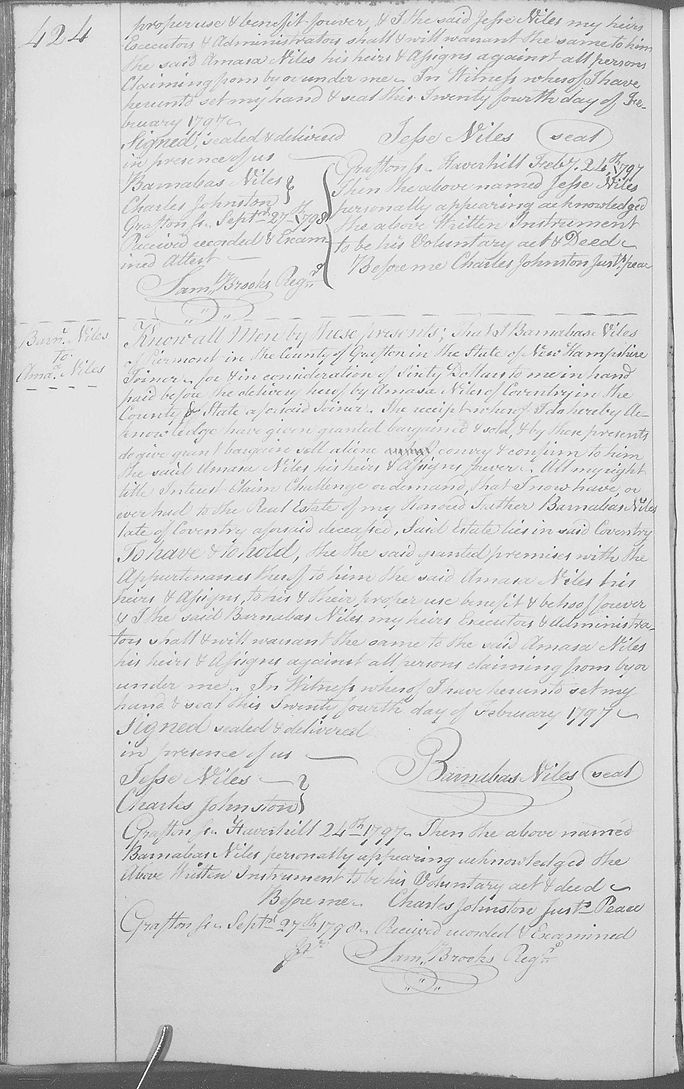 424
proper use & benefit forever, & I the said Jesse Niles my heirs
Executors & Administrators shall & will warrant the same to him
the said Amasa Niles his heirs & Assigns against all persons
Claiming from by or under me. In Witness whereof I have
hereunto set my hand & seal this Twenty fourth day of Fe-
bruary 1797
Signed, sealed & delivered Jesse Niles (seal)
in presence of us
Barnabas Niles
Charles Johnston
Grafton ss. Sept.r 27th 1798
Received recorded & Exam
ined Attest
Sam.l Brooks Reg.r
Grafton ss. Haverhill Feb.y 24th 1797
Then the above named Jesse Niles
personally appearing acknowledged
the above Written Instrument
to be his Voluntary act & Deed
Before me Charles Johnston Just. peace
Barn.s Niles
To
Ama.a Niles
Know all Men by these presents, That I Barnabas Niles
of Piermont in the County of Grafton in the State of New Hampshire
Joiner for & in consideration of Sixty Dollars to me in hand
paid before the delivery hereof by Amasa Niles of Coventry in the
County & State aforsaid Joiner. The receipt whereof I do hereby Ac-
knowledge have given granted bargained & sold, & by these presents
do give grant bargain sell aliene convey & confirm to him
the said Amasa Niles his heirs & Assigns forever. All my right
title Interest Claim Challenge or demand, that I now have, or
ever had to the Real Estate of my Honored Father Barnabas Niles
late of Coventry aforsaid deceased, Said Estate lies in said Coventry
To have & to hold, the the said granted premises with the
Appurtenances thereof to him the said Amasa Niles his
heirs & Assigns, to his & their proper use benefit & behoof forever
& I the said Barnabas Niles my heirs Executors & Administra-
tors shall & will warrant the same to the said Amasa Niles
his heirs & Assigns against all persons claiming from by or
under me. In Witness whereof I have hereunto set my
hand & seal this Twenty fourth day of February 1797
Signed sealed & delivered
in presence of us
Jesse Niles
Charles Johnston
Barnabas Niles (seal)
Grafton ss. Haverhill 24th 1797. Then the above named
Barnabas Niles personally appearing acknowledged the
above Written Instrument to be his Voluntary act & deed
Before me Charles Johnston Just.s Peace
Grafton ss. Sept.r 27th 1798. Received recorded & Examined
Sam.l Brooks Reg.r